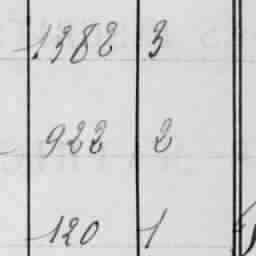 1382 3
922 2
120 1